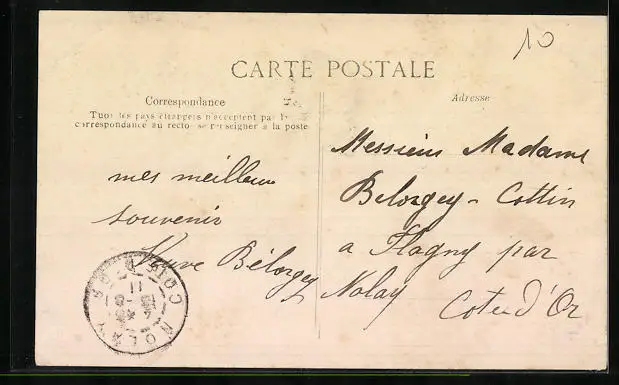 10
CARTE POSTALE
Correspondance
Adresse
Tous les pays étrangers n'acceptent pas la
correspondance au recto se renseigner à la poste
mes meilleurs
souvenir
Veuve Bélorgey
Messieur Madame
Belorgey - Cottin
a Flagny par
Nolay
Cote d'Or
NOLAY
COTE D'OR